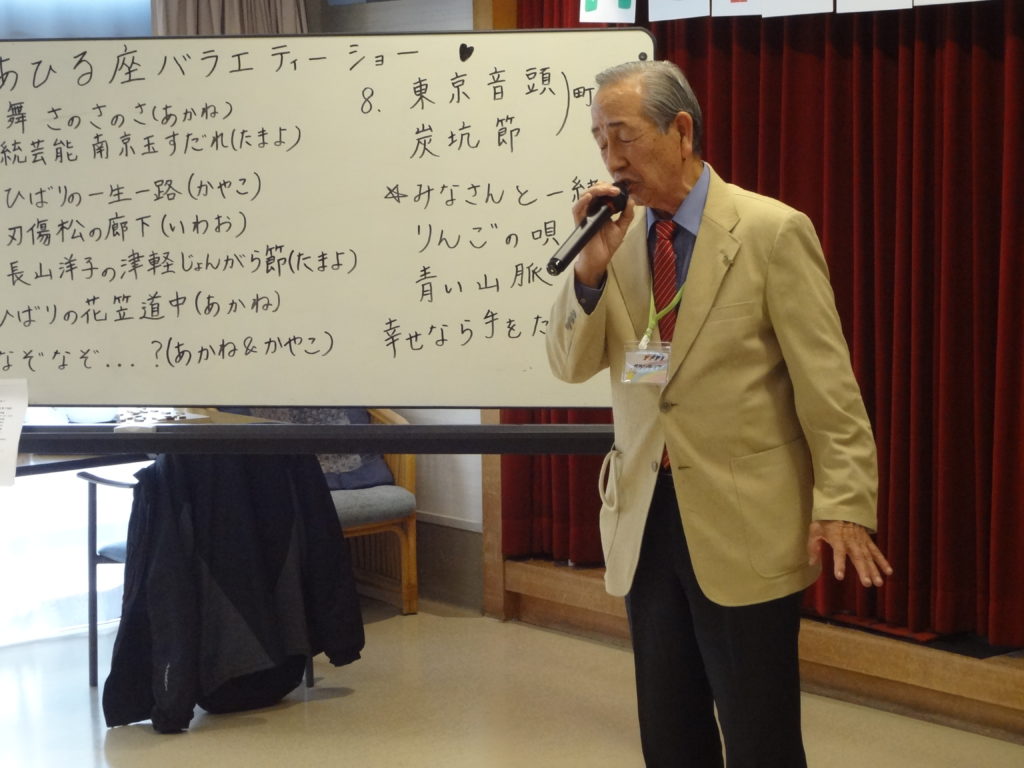 あひる座バラエティーショー ♥
舞 さのさのさ(あかね)
統芸能 南京玉すだれ(たまよ)
ひばりの一生一路(かやこ)
刃傷松の廊下(いわお)
長山洋子の津軽じょんがら節(たまよ)
ひばりの花笠道中(あかね)
なぞなぞ...?(あかね&かやこ)
8. 東京音頭
炭坑節
)町
☆みなさんと一緒
りんごの唄
青い山脈
幸せなら手をた